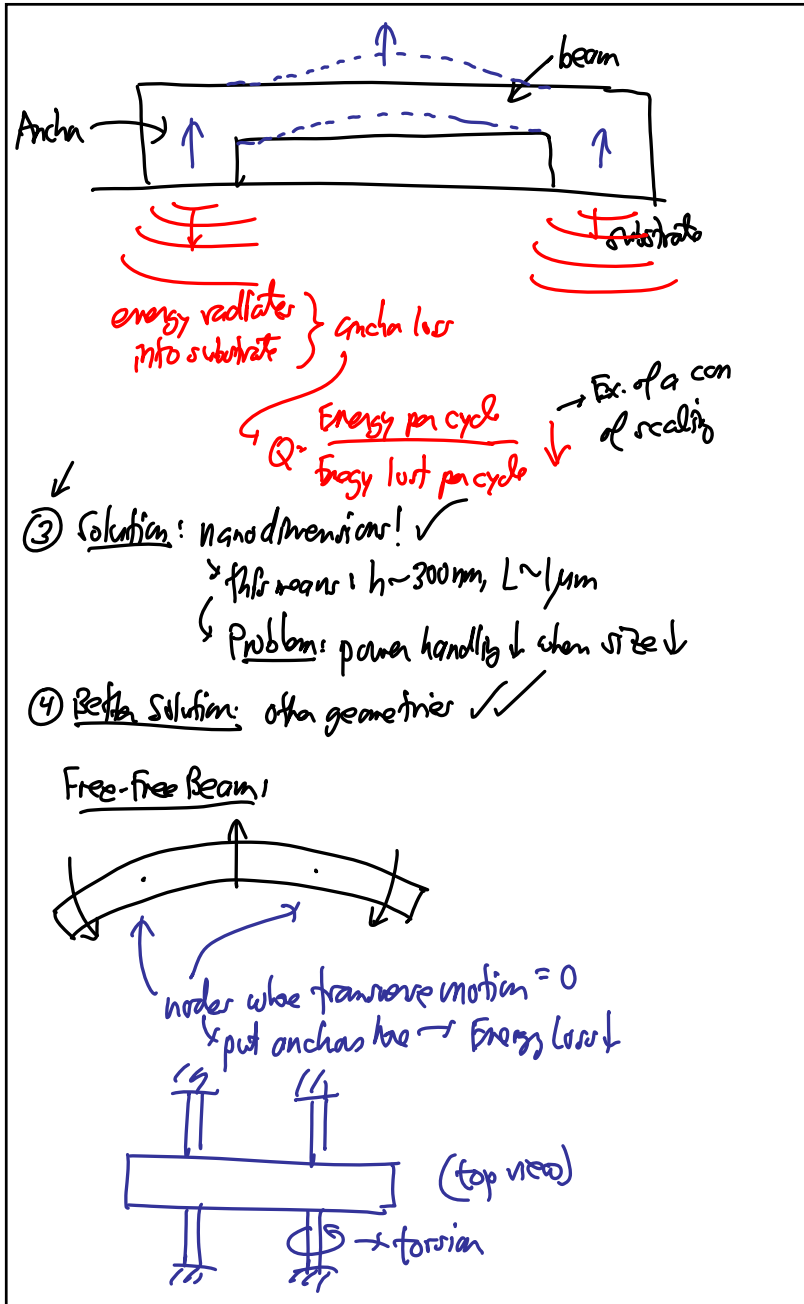 beam
Anchor
substrate
energy radiates
into substrate } anchor loss
Q ~ Energy per cycle / Energy lost per cycle ↓ → Ex. of a con
of scaling
③ Solution: nanodimensions! ✓
↳ this means: h~300nm, L~1μm
↳ Problem: power handling ↓ when size ↓
④ Better Solution: other geometries ✓✓
Free-Free Beam:
nodes where transverse motion = 0
↳ put anchors here → Energy Loss↓
(top view)
→ torsion